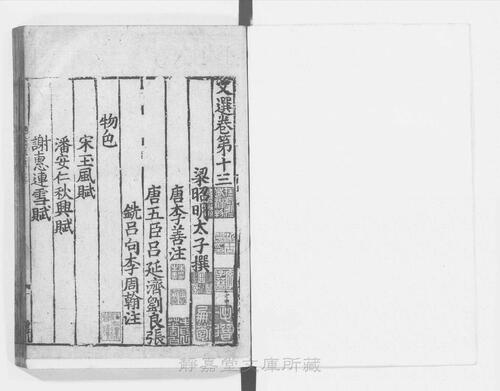 文選卷第十三
梁昭明太子撰
唐李善注
唐五臣呂延濟劉良張
銑呂向李周翰注
物色
宋玉風賦
潘安仁秋興賦
謝惠連雪賦
静嘉堂文庫所藏